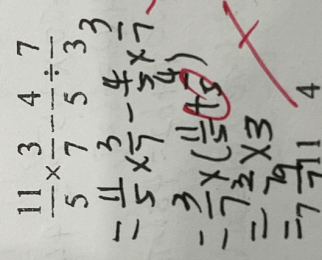 11/5 × 3/7 − 4/5 ÷ 7/3
= 11/5 × 3/7 − 4/5 × 3/7
= 3/7 × (11/5 + 4/5)
= 3/7 × 3
= 9/7
7 11 4